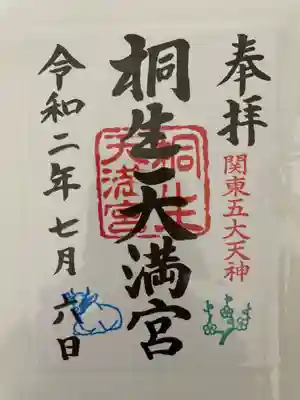 奉拝
関東五大天神
桐生天満宮
桐生天満宮
令和二年七月六日